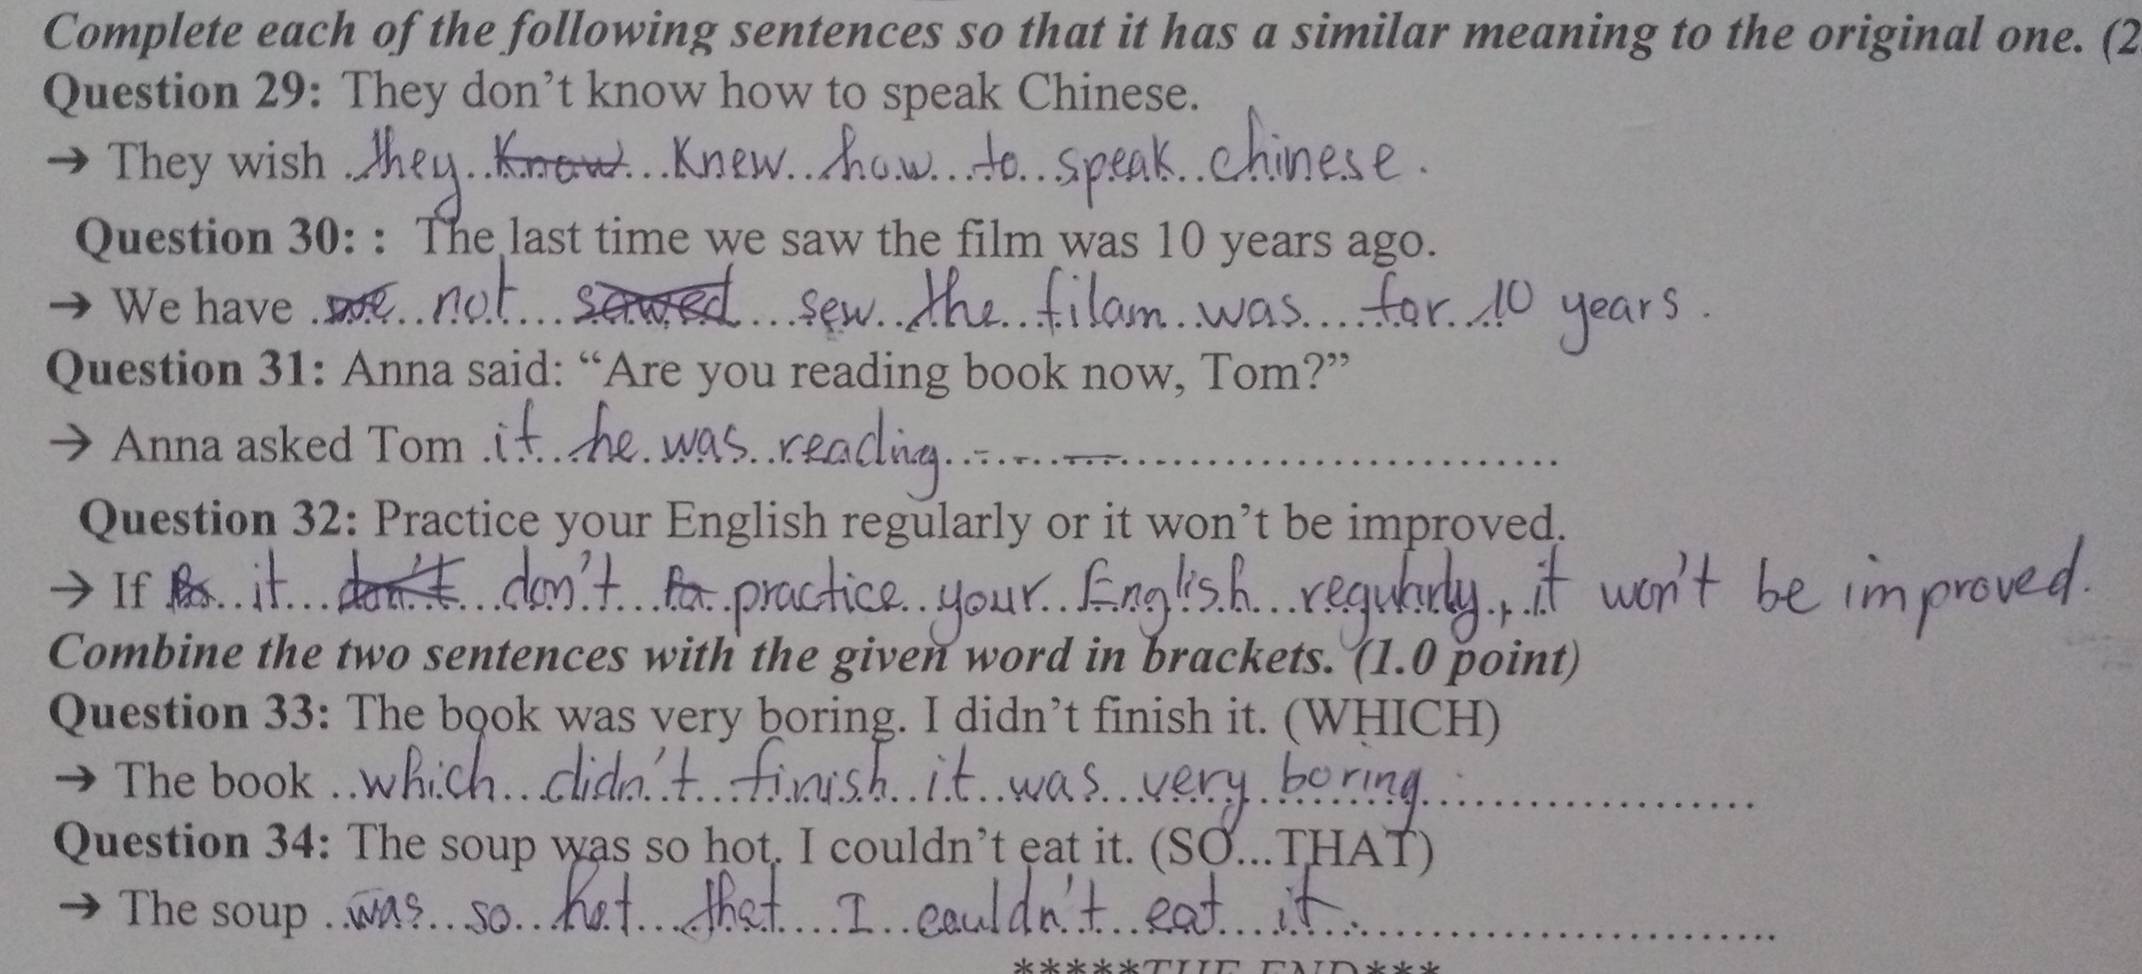 Complete each of the following sentences so that it has a similar meaning to the original one. (2
Question 29: They don't know how to speak Chinese.
→ They wish they know knew how to speak chinese.
Question 30: : The last time we saw the film was 10 years ago.
→ We have we not sawed sew the filam was for 10 years.
Question 31: Anna said: “Are you reading book now, Tom?”
→ Anna asked Tom if he was reading
Question 32: Practice your English regularly or it won't be improved.
→ If it don't don't practice your English regularly, it won't be improved.
Combine the two sentences with the given word in brackets. (1.0 point)
Question 33: The book was very boring. I didn't finish it. (WHICH)
→ The book which didn't finish it was very boring.
Question 34: The soup was so hot. I couldn't eat it. (SO...THAT)
→ The soup was so hot that I couldn't eat it.
*****THE END***